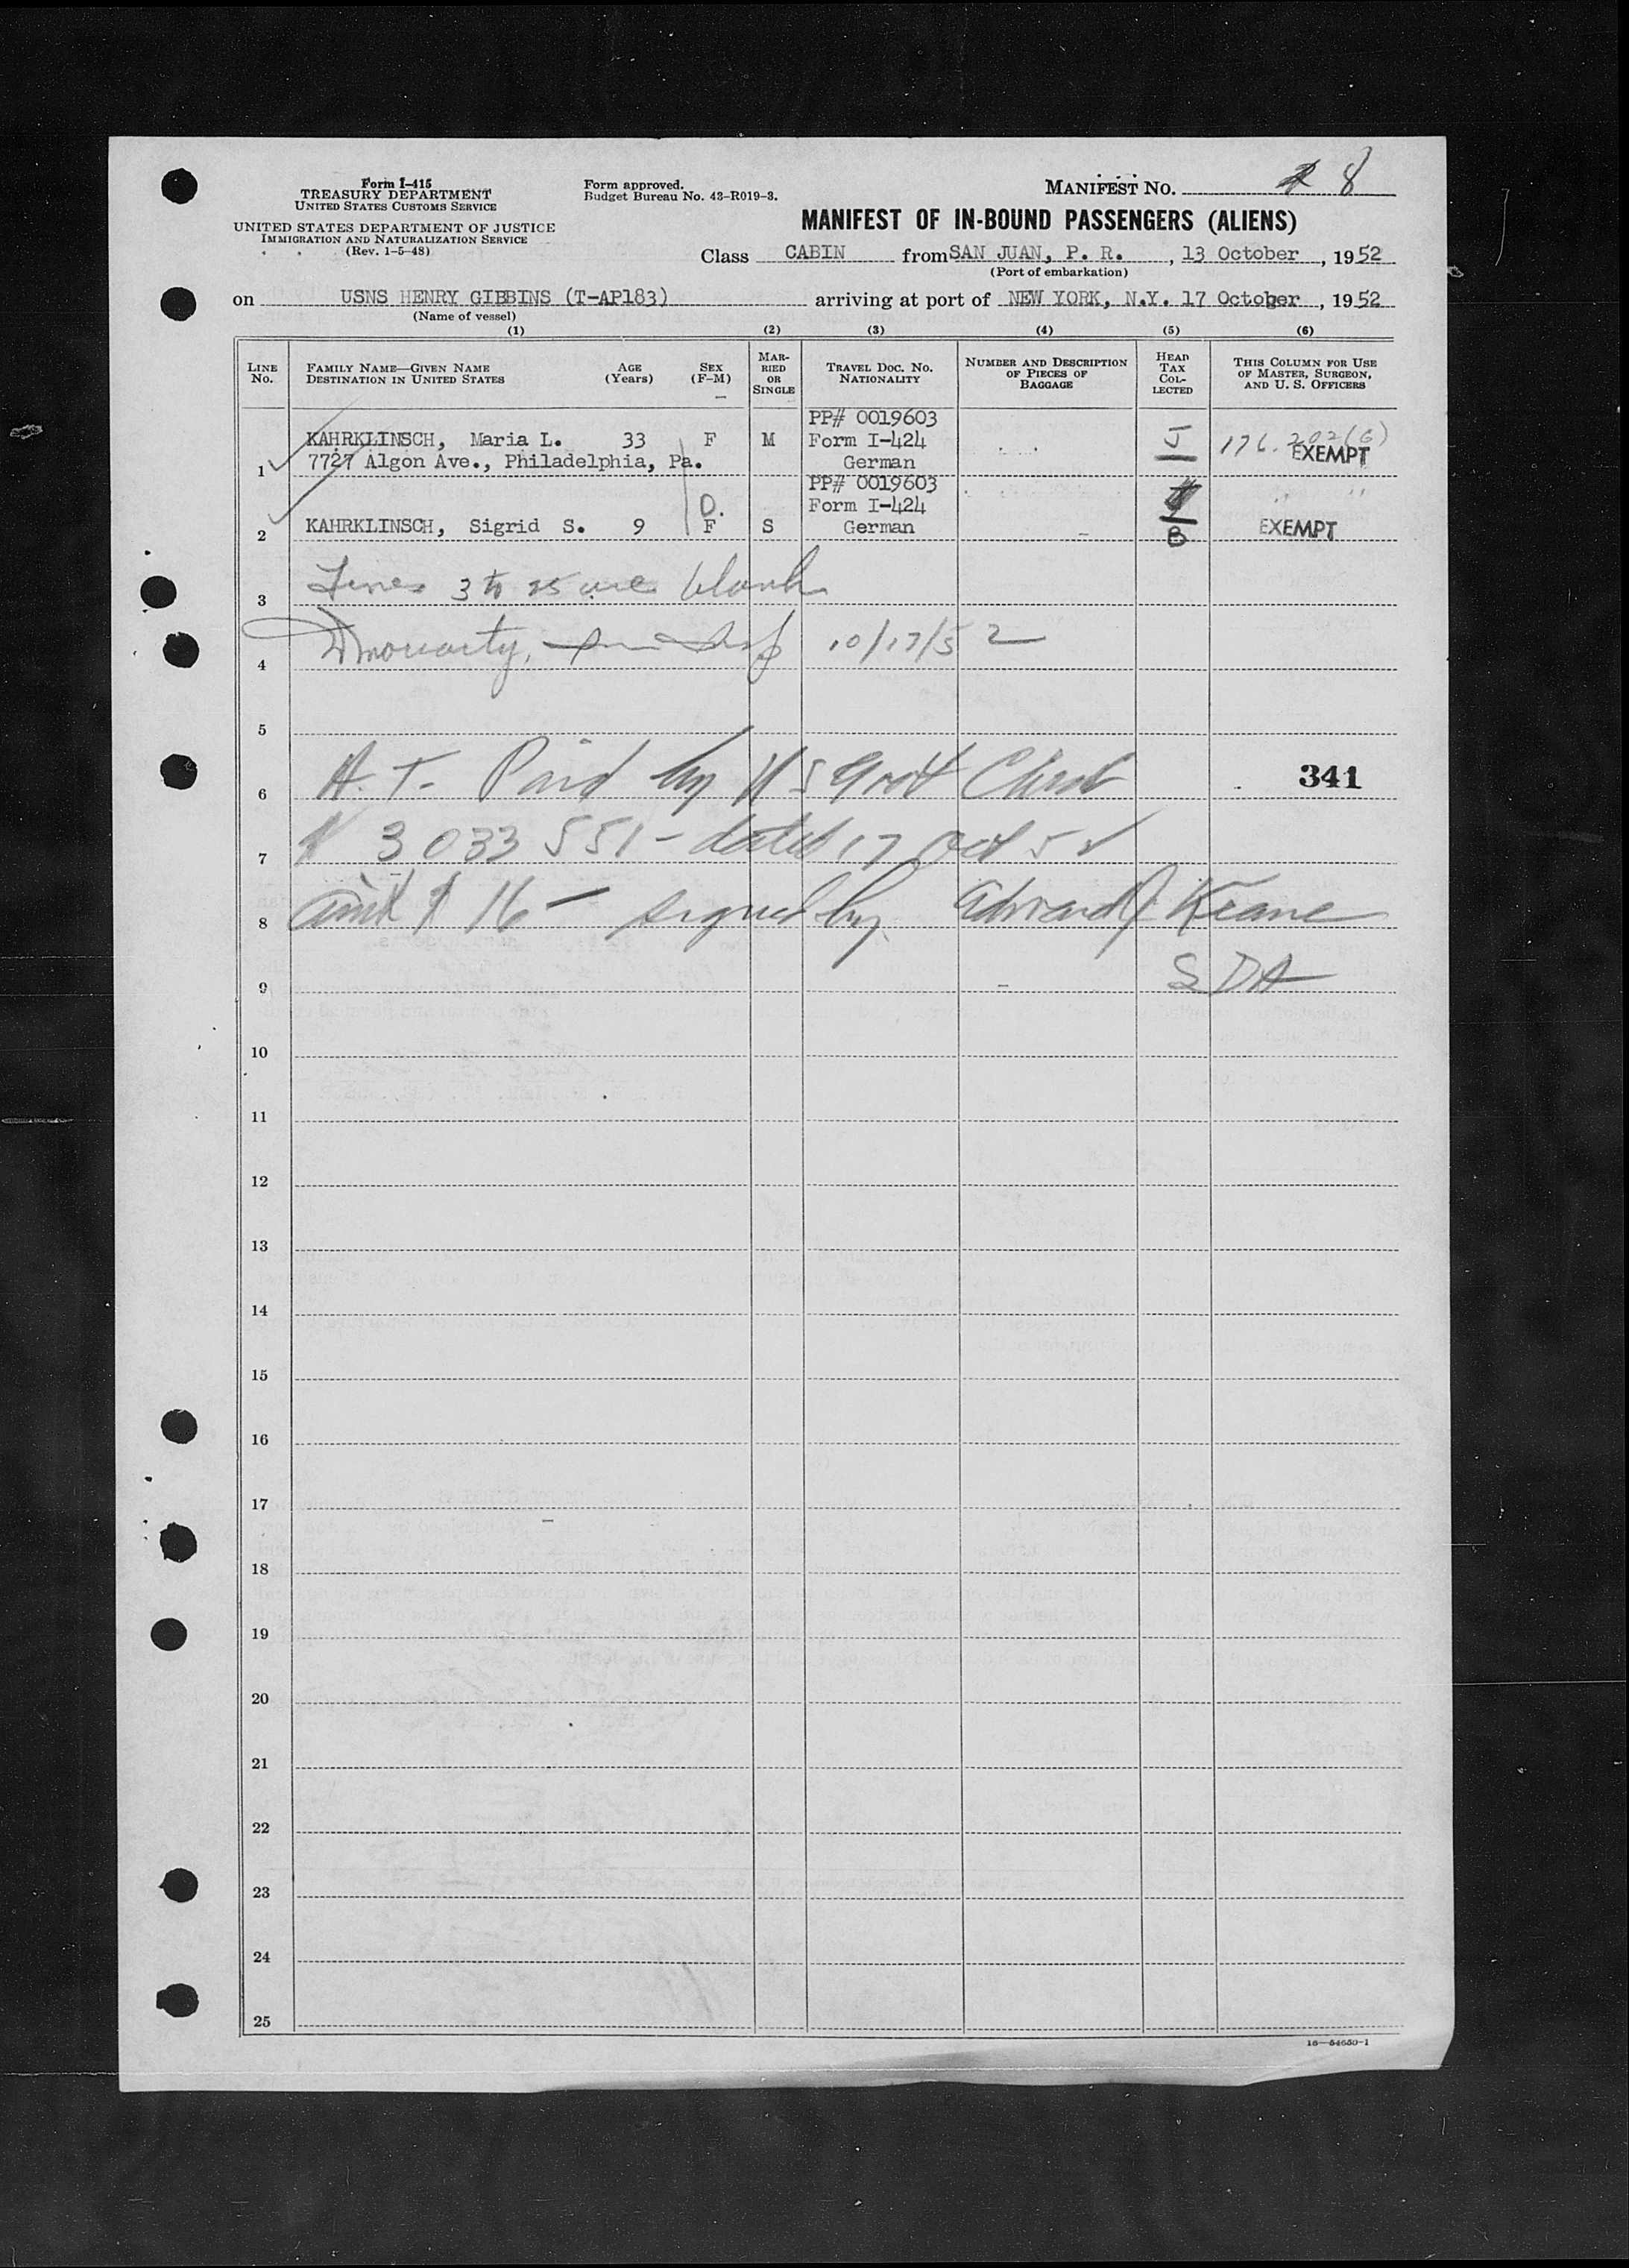 Form I-415
TREASURY DEPARTMENT
UNITED STATES CUSTOMS SERVICE
UNITED STATES DEPARTMENT OF JUSTICE
IMMIGRATION AND NATURALIZATION SERVICE
(Rev. 1-5-48)
Form approved.
Budget Bureau No. 43-R019-3.
MANIFEST NO. 8
MANIFEST OF IN-BOUND PASSENGERS (ALIENS)
Class CABIN from SAN JUAN, P. R., 13 October, 1952
(Port of embarkation)
on USNS HENRY GIBBINS (T-AP183) arriving at port of NEW YORK, N.Y. 17 October, 1952
(Name of vessel)
(1) (2) (3) (4) (5) (6)
LINE No.
FAMILY NAME—GIVEN NAME
DESTINATION IN UNITED STATES
AGE (Years)
SEX (F-M)
MARRIED OR SINGLE
TRAVEL DOC. NO.
NATIONALITY
NUMBER AND DESCRIPTION OF PIECES OF BAGGAGE
HEAD TAX COLLECTED
THIS COLUMN FOR USE OF MASTER, SURGEON, AND U. S. OFFICERS
PP# 0019603
KAHRKLINSCH, Maria L. 33 F M Form I-424 J 176. 202(G)
EXEMPT
1 7727 Algon Ave., Philadelphia, Pa. German
PP# 0019603
D. Form I-424 " "
2 KAHRKLINSCH, Sigrid S. 9 F S German B EXEMPT
3 Lines 3 to 25 are blank
4 Moriarty, 10/17/52
5
6 H. T. Paid by US Govt Check 341
7 # 3033551 - dated 17 Oct 52
8 amt $ 16 - signed by Edward J. Keane
9 SDA
10
11
12
13
14
15
16
17
18
19
20
21
22
23
24
25
16—54650-1